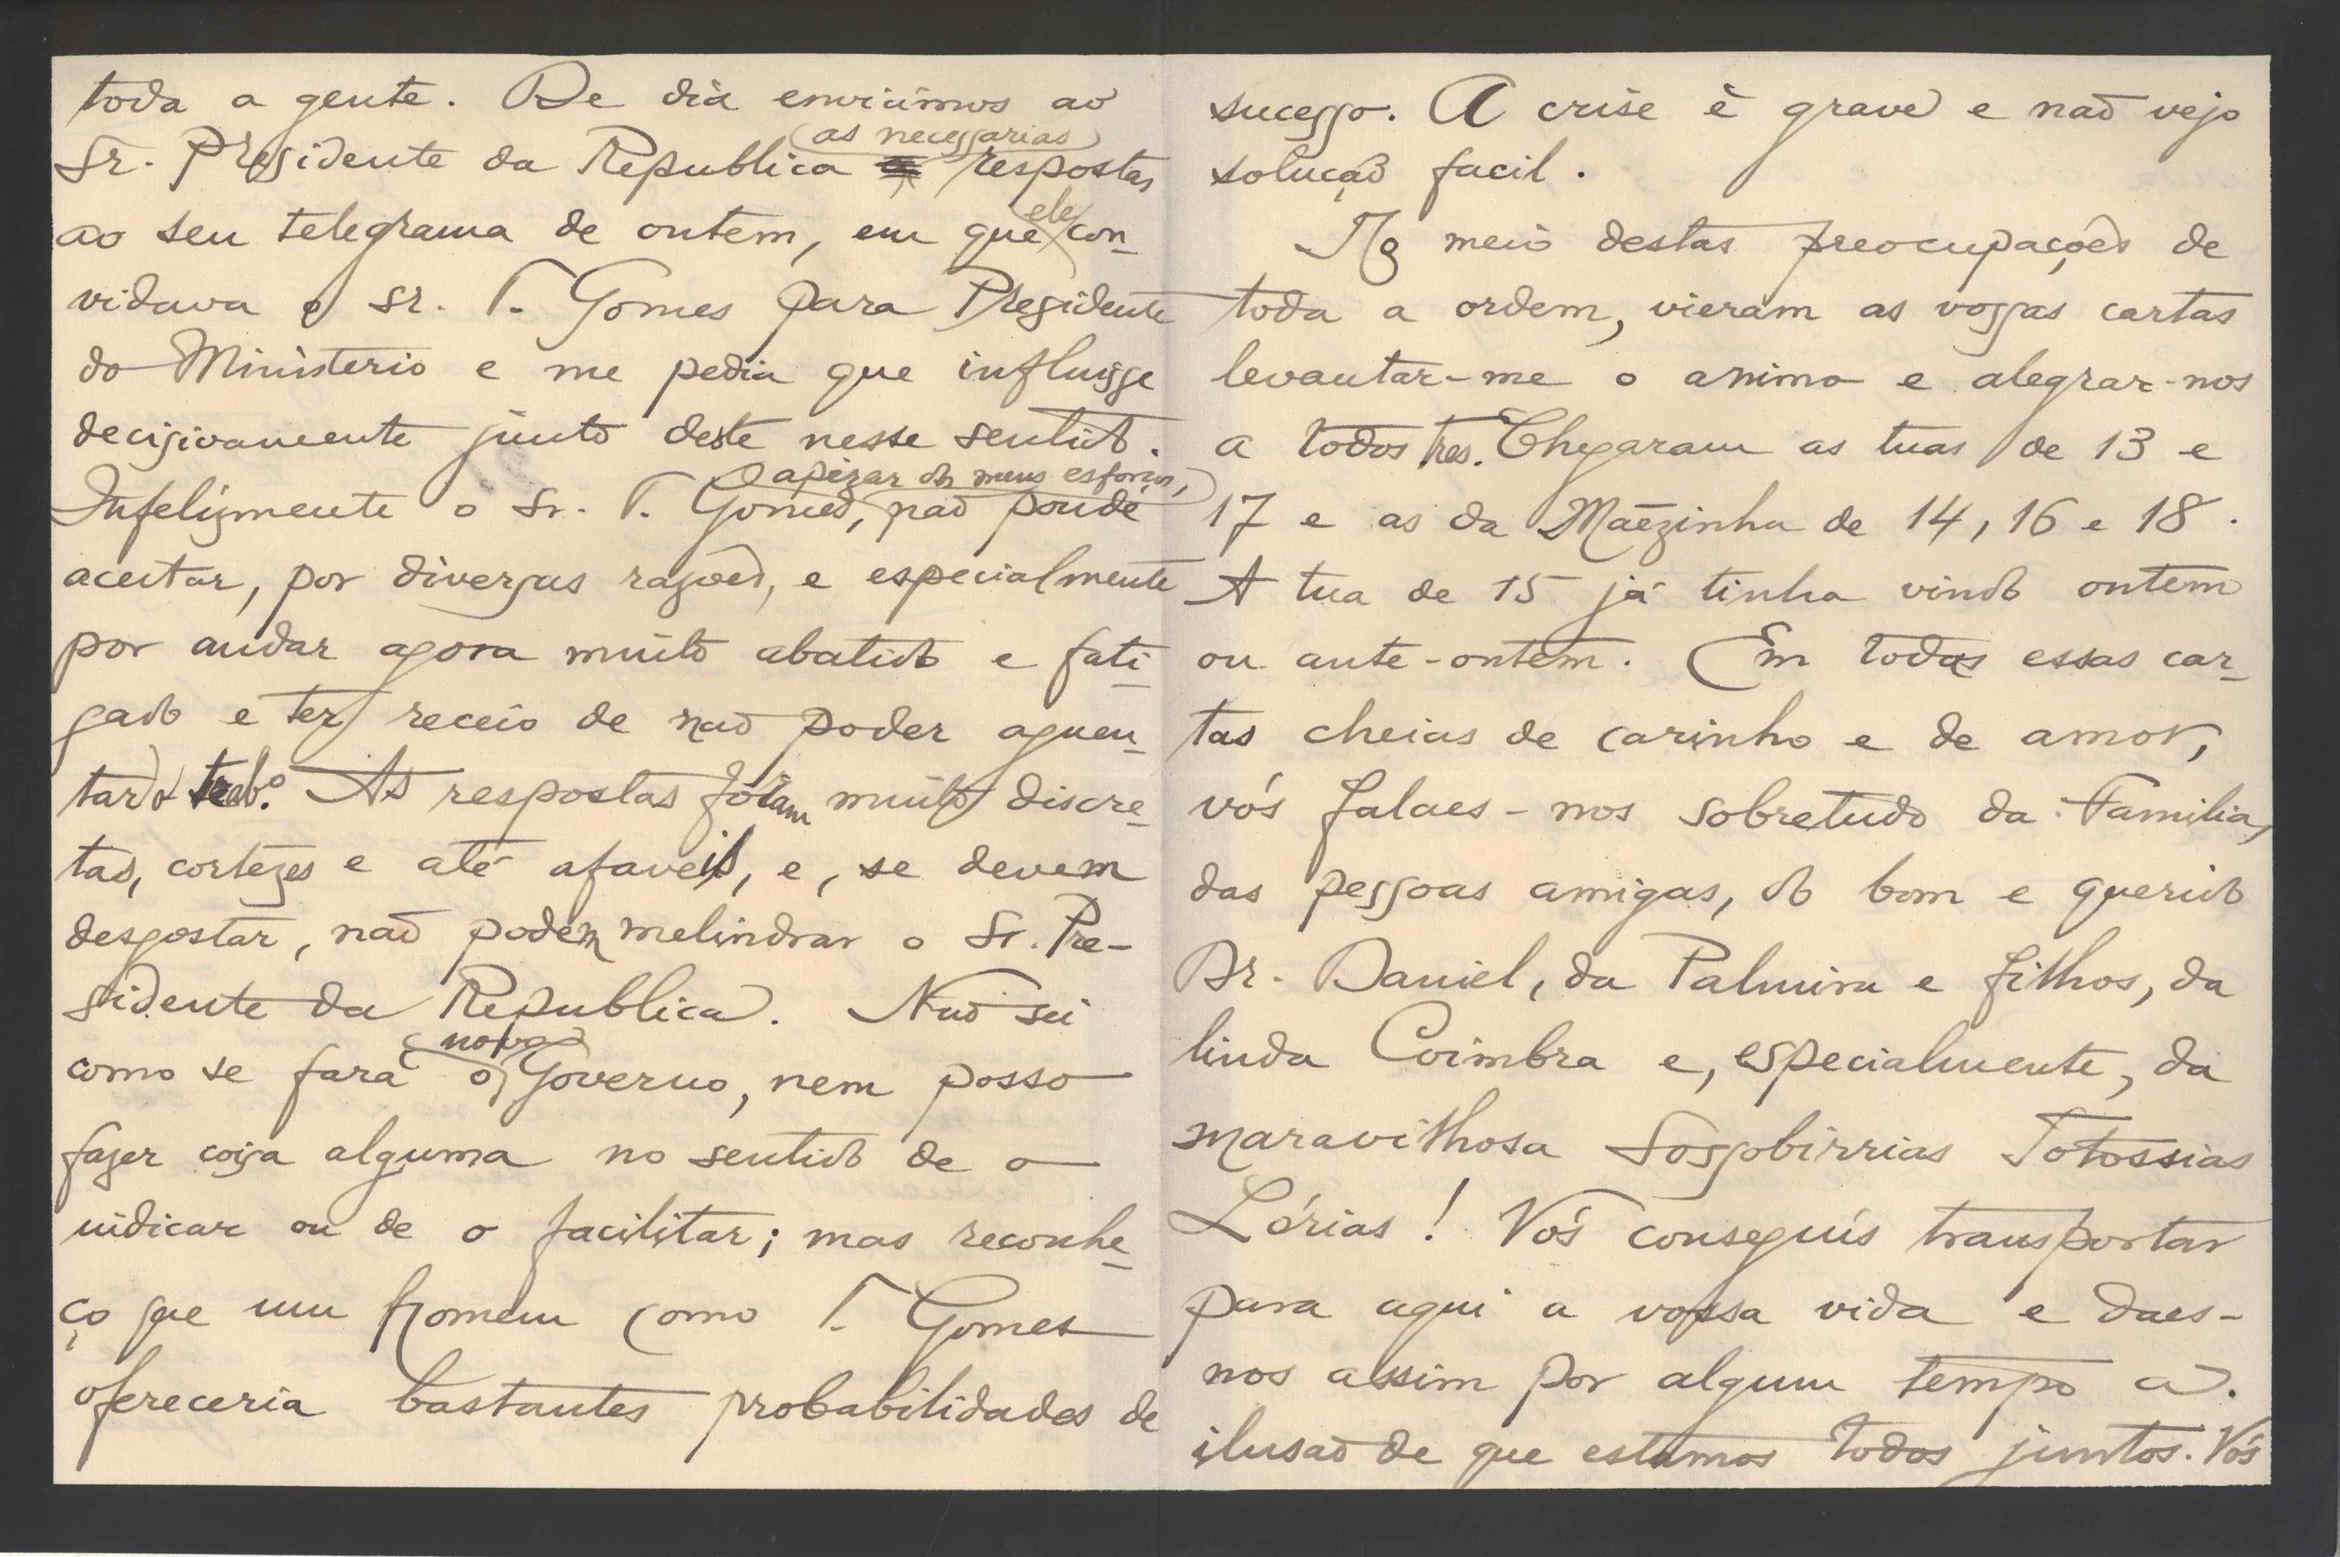 toda a gente. De dia enviámos ao
as necessarias
Sr. Presidente da Republica respostas
ele
ao seu telegrama de ontem, em que con-
vidava o sr. T. Gomes para Presidente
do Ministerio e me pedia que influisse
decisivamente junto deste nesse sentido.
apezar dos meus esforços,
Infelizmente o Sr. T. Gomes, não poude
aceitar, por diversas razões, e especialmente
por andar agora muito abatido e fati-
gado e ter receio de não poder aguen-
tar o trabº. As respostas fóram muito discre-
tas, cortezes e até afaveis, e, se devem
desgostar, não podem melindrar o Sr. Pre-
sidente da Republica. Não sei
novo
como se fará o Governo, nem posso
fazer coisa alguma no sentido de o
indicar ou de o facilitar; mas reconhe-
ço que um homem como T. Gomes
ofereceria bastantes probabilidades de
sucesso. A crise é grave e não vejo
solução facil.
No meio destas preocupações de
toda a ordem, vieram as vossas cartas
levantar-me o animo e alegrar-nos
a todos tres. Chegaram as tuas de 13 e
17 e as da Mãezinha de 14, 16 e 18.
A tua de 15 já tinha vindo ontem
ou ante-ontem. Em todas essas car-
tas cheias de carinho e de amor,
vós falaes-nos sobretudo da Familia,
das pessoas amigas, do bom e querido
Dr. Daniel, da Palmira e filhos, da
linda Coimbra e, especialmente, da
maravilhosa Sosgobirrias Totossias
Lérias! Vós conseguís transportar
para aqui a vossa vida e daes-
nos assim por algum tempo a
ilusão de que estamos todos juntos. Vós